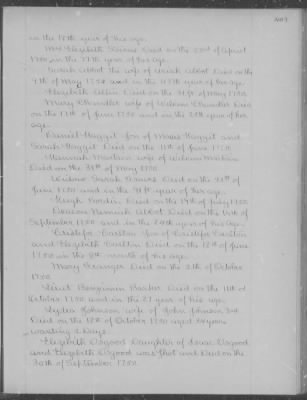 in the 18th year of his age.
Mrs Elizabeth Stevens Died on the 22nd of April
1750 in the 77th year of her age.
Sarah Abbot the wife of Uriah Abbot Died on the
9th of May 1750 and in the year of her age.
Elizabeth Allin Died on the 31st of May 1750.
Mary Chandler wife of William Chandler Died
on the 17th of June 1750 and on the 24th year of her
age.
Daniel Faggit Son of Moses Faggit and
Sarah Faggit Died on the 11th of June 1750.
Hannah wife of William
Died on the 31st of May 1750.
Widow Sarah Died on the 21st of
June 1750 and in the 91st year of her age.
Hugh Bodin Died on the 19th of July 1750.
Deacon Nemiah Abbot Died on the of
September 1750 and in the year of his age.
Cristefor Carlton Son of Cristefor Carlton
and Elizabeth Carlton Died on the 12th of June
1750 in the 8th month of his age.
Mary Granger Died on the 5th of October
1750.
Lieut Benjamin Barker Died on the 11th of
October 1750 and in the 27 year of his age.
Lydia Johnson wife of John Johnson 3rd
Died on the 12th of October 1750 aged years
wanting 2 Days.
Elizabeth Osgood Daughter of Isaac Osgood
and Elizabeth Osgood was and Died on the
30th of September 1750.